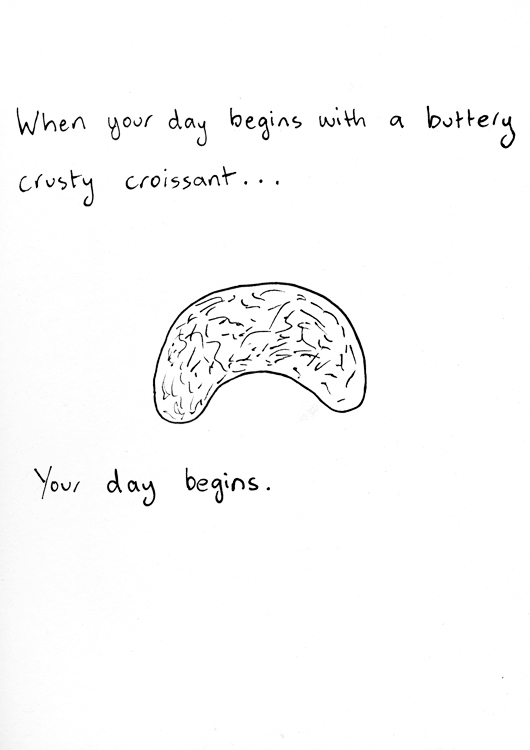 When your day begins with a buttery
crusty croissant...
Your day begins.